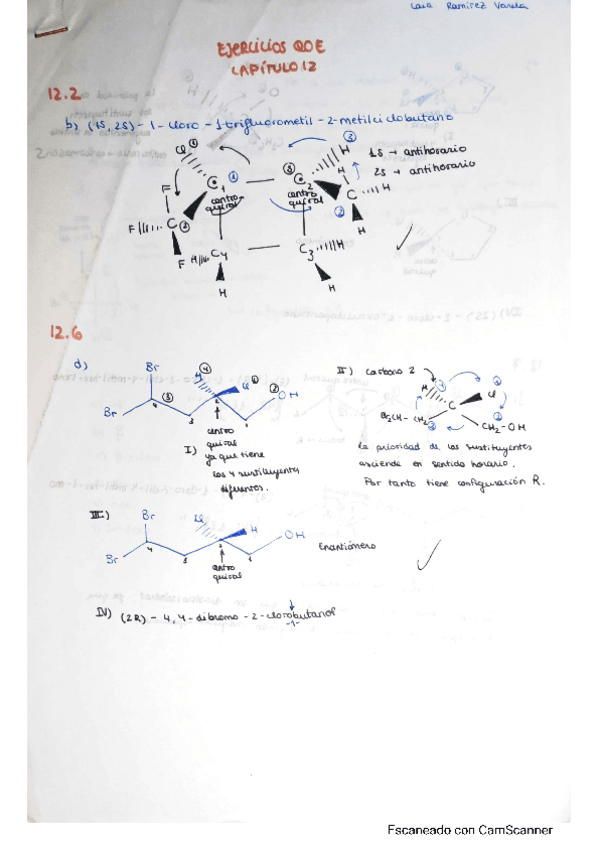 Laia Ramírez Varela
EJERCICIOS QOE
CAPÍTULO 12
12.2
b) (1S, 2S) - 1 - cloro - 1 trifluorometil - 2 - metilciclobutano
1S → antihorario
2S → antihorario
Cl ① H ③ H
F C 1 ① ③ C 2 C H
centro quiral centro quiral
F C ② ② H
F H C4 C3 H
H H
12.6
d)
Br ④ H Cl ① ② OH
Br 4 ③ 3 2 1
centro
quiral
I) ya que tiene
los 4 sustituyentes
diferentes.
II) Carbono 2
H Cl
C
Br2CH - CH2 CH2 - OH
la prioridad de los sustituyentes
asciende en sentido horario.
Por tanto tiene configuración R.
III)
Br Cl H OH
Br 4 3 2 1
centro
quiral
Enantiómero
IV) (2R) - 4, 4 - dibromo - 2 - clorobutanol
-1-
Escaneado con CamScanner